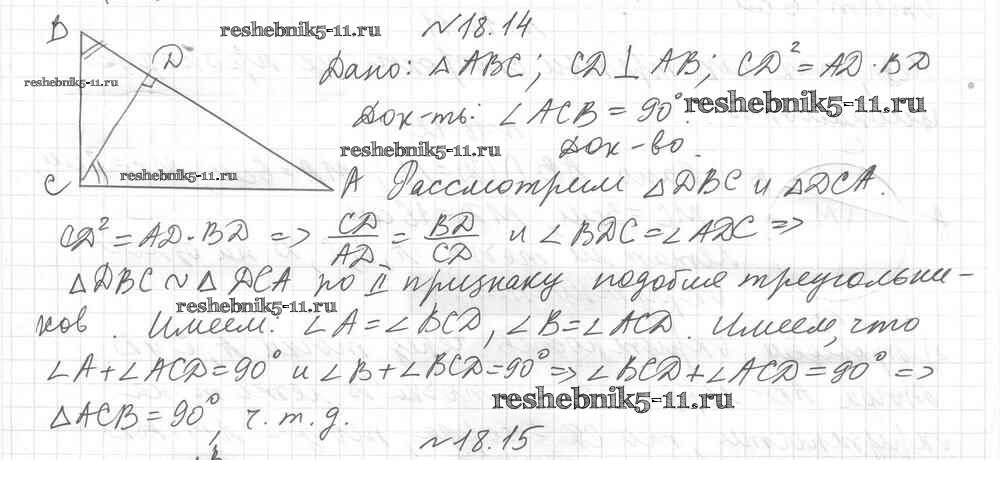 №18.14
B
D
C
A
reshebnik5-11.ru
reshebnik5-11.ru
reshebnik5-11.ru
Дано: △ABC; CD⊥AB; CD²=AD·BD
Док-ть: ∠ACB=90°. reshebnik5-11.ru
reshebnik5-11.ru Док-во.
Рассмотрим △DBC и △DCA.
CD²=AD·BD => CD/AD=BD/CD и ∠BDC=∠ADC =>
△DBC ~ △DCA по II признаку подобия треугольни-
reshebnik5-11.ru
ков. Имеем: ∠A=∠BCD, ∠B=∠ACD. Имеем, что
∠A+∠ACD=90° и ∠B+∠BCD=90° => ∠BCD+∠ACD=90° =>
reshebnik5-11.ru
△ACB=90°, ч.т.д.
№18.15